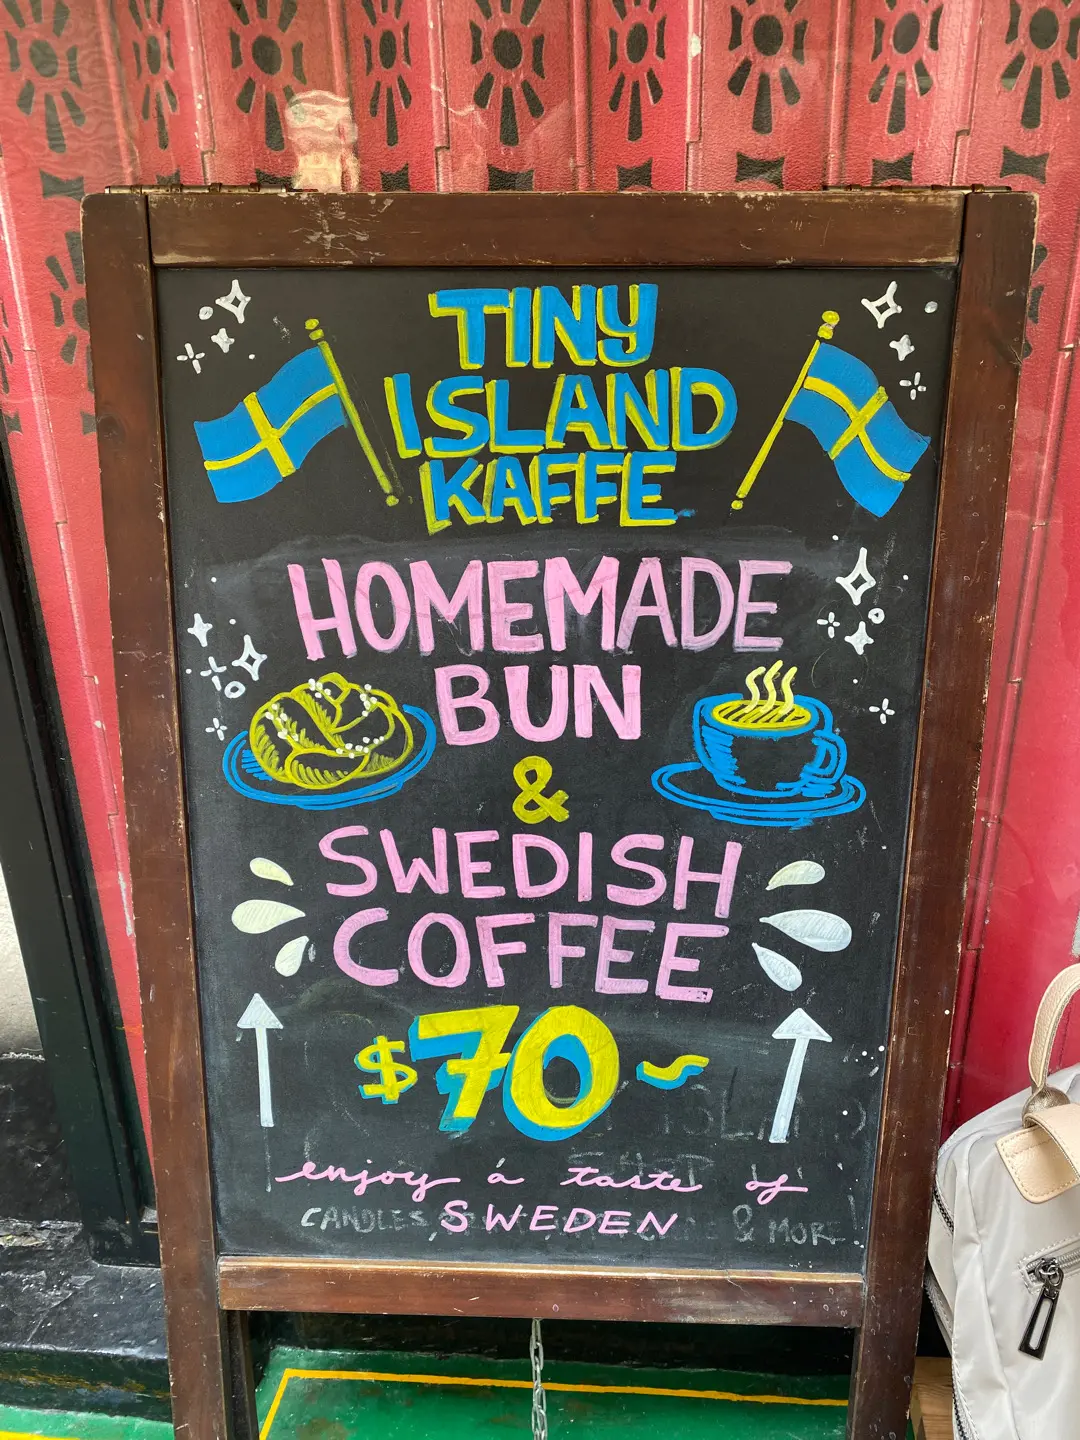 TINY
ISLAND
KAFFE
HOMEMADE
BUN
&
SWEDISH
COFFEE
$70~
enjoy a taste of
SWEDEN
CANDLES & MORE!